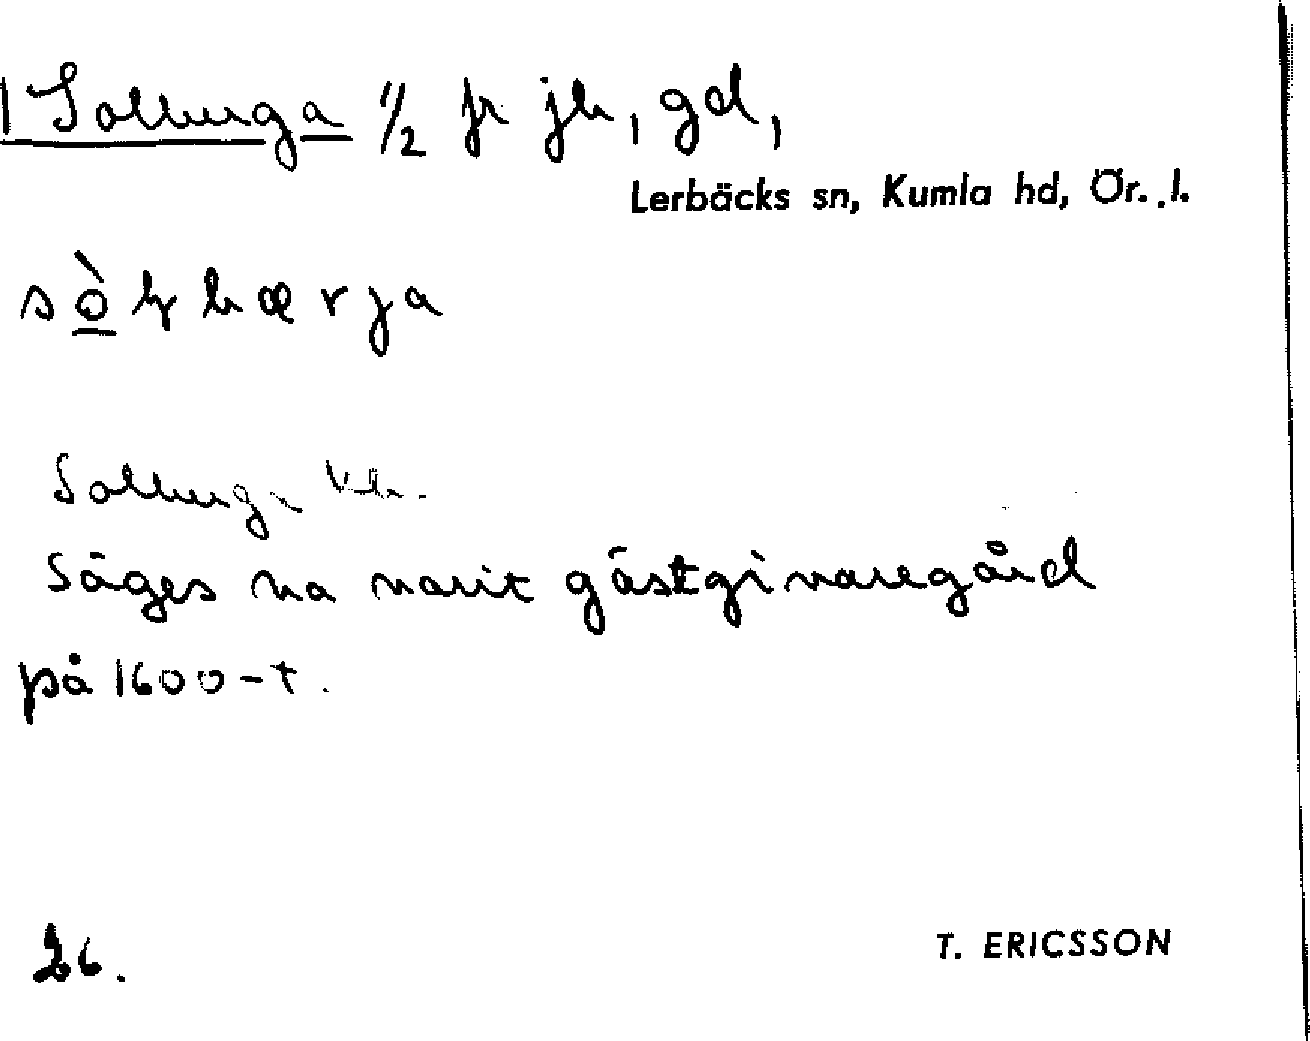 1 Solberga 1/2 fr jb, gd,
Lerbäcks sn, Kumla hd, Ör. l.
Solberga
Säges va varit gästgivaregård
på 1600-t.
26.
T. ERICSSON